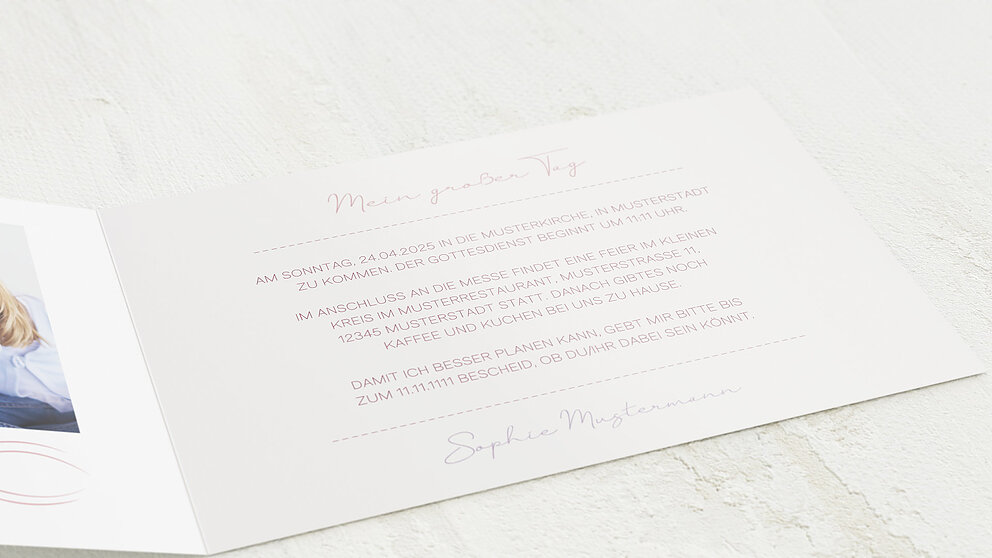 Mein großer Tag
AM SONNTAG, 24.04.2025 IN DIE MUSTERKIRCHE, IN MUSTERSTADT
ZU KOMMEN. DER GOTTESDIENST BEGINNT UM 11:11 UHR.
IM ANSCHLUSS AN DIE MESSE FINDET EINE FEIER IM KLEINEN
KREIS IM MUSTERRESTAURANT, MUSTERSTRASSE 11,
12345 MUSTERSTADT STATT. DANACH GIBTES NOCH
KAFFEE UND KUCHEN BEI UNS ZU HAUSE.
DAMIT ICH BESSER PLANEN KANN, GEBT MIR BITTE BIS
ZUM 11.11.1111 BESCHEID, OB DU/IHR DABEI SEIN KÖNNT,
Sophie Mustermann